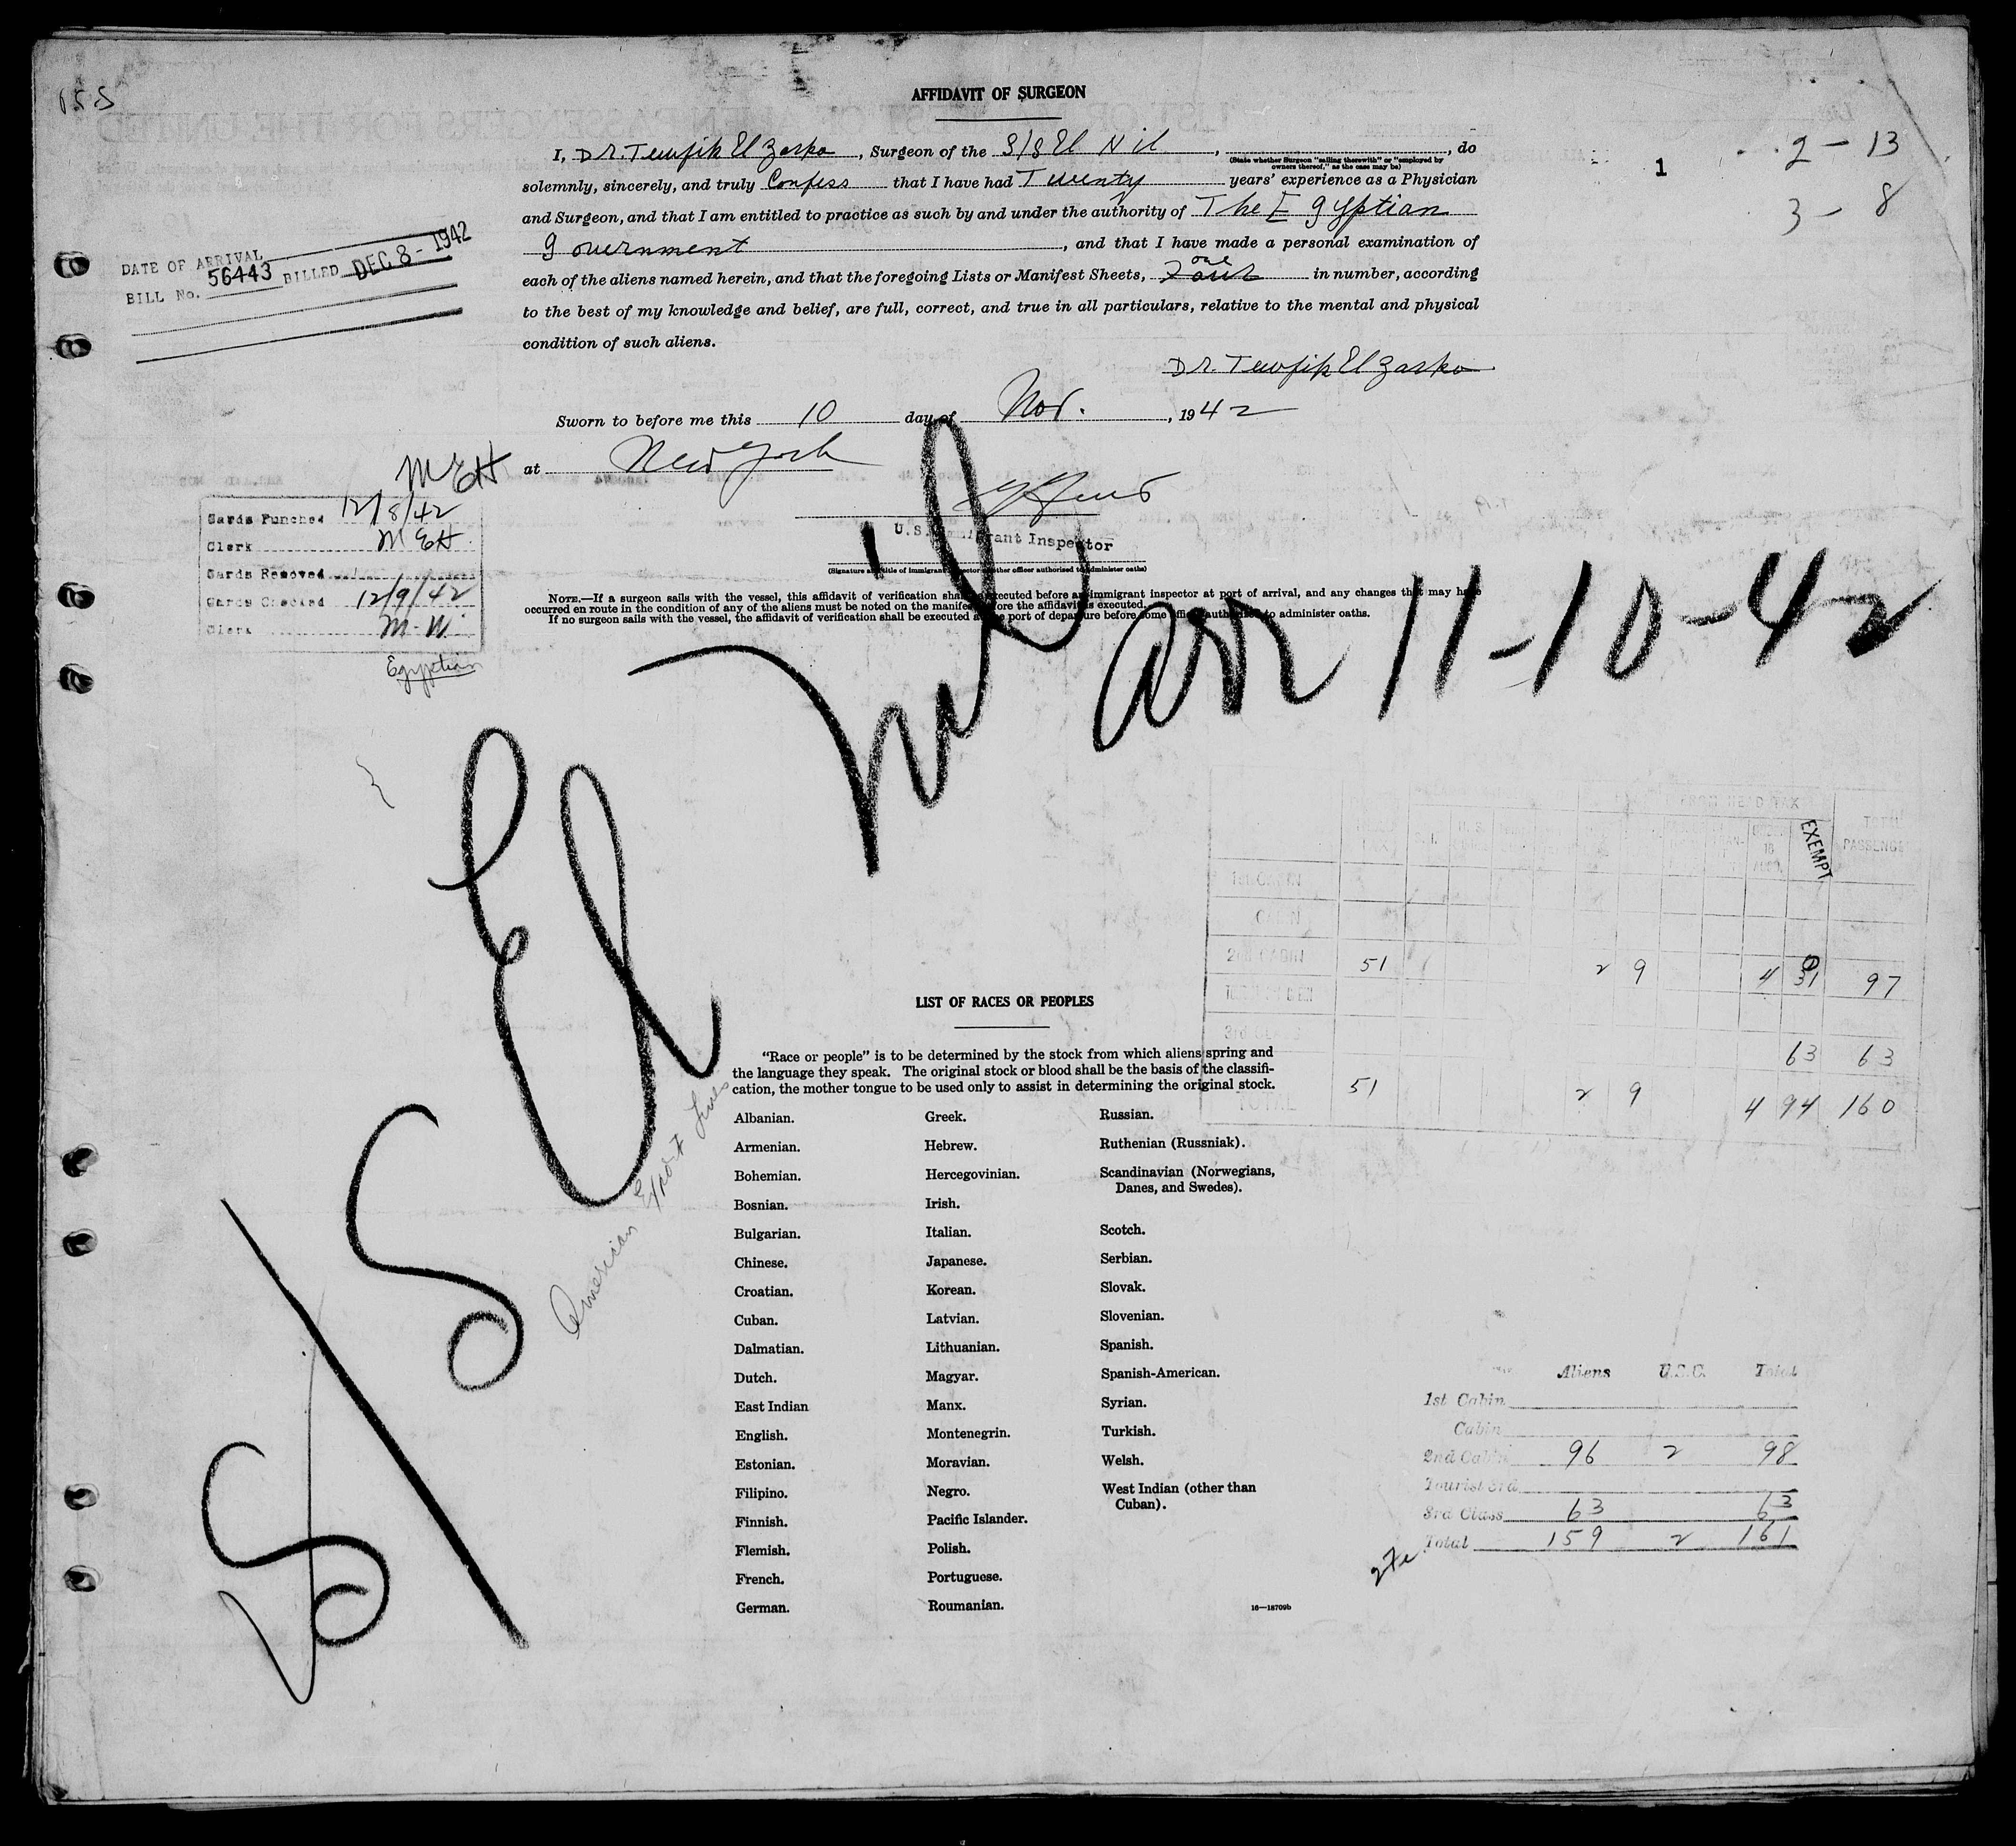 155
AFFIDAVIT OF SURGEON
I, Dr. Tewfik El Zarka, Surgeon of the S/S El Nil, , do
(State whether Surgeon "sailing therewith" or "employed by owners thereof," as the case may be)
solemnly, sincerely, and truly Confess that I have had Twenty years' experience as a Physician
and Surgeon, and that I am entitled to practice as such by and under the authority of The Egyptian
government, and that I have made a personal examination of
each of the aliens named herein, and that the foregoing Lists or Manifest Sheets, one in number, according
to the best of my knowledge and belief, are full, correct, and true in all particulars, relative to the mental and physical
condition of such aliens.
Dr. Tewfik El Zarka
Sworn to before me this 10 day of Nov., 1942
at New York
U.S. Immigrant Inspector
(Signature and title of immigrant inspector or other officer authorized to administer oaths)
NOTE.—If a surgeon sails with the vessel, this affidavit of verification shall be executed before an immigrant inspector at port of arrival, and any changes that may have
occurred en route in the condition of any of the aliens must be noted on the manifest before the affidavit is executed.
If no surgeon sails with the vessel, the affidavit of verification shall be executed at the port of departure before some officer authorized to administer oaths.
1
2 - 13
3 - 8
DATE OF ARRIVAL
BILL No. 56443 BILLED DEC 8 - 1942
MEH
Cards Punched 12/8/42
Clerk MEH
Cards Removed
Cards Checked 12/9/42
Clerk M.W.
Egyptian
S/S El Nil arr 11-10-42
American Export Lines
FROM HEAD TAX
EXEMPT
TOTAL PASSENGE
1st CABIN
CABIN
2nd CABIN 51 2 9 4 31 97
63 63
TOTAL 51 2 9 4 94 160
LIST OF RACES OR PEOPLES
"Race or people" is to be determined by the stock from which aliens spring and
the language they speak. The original stock or blood shall be the basis of the classifi-
cation, the mother tongue to be used only to assist in determining the original stock.
Albanian.
Armenian.
Bohemian.
Bosnian.
Bulgarian.
Chinese.
Croatian.
Cuban.
Dalmatian.
Dutch.
East Indian
English.
Estonian.
Filipino.
Finnish.
Flemish.
French.
German.
Greek.
Hebrew.
Hercegovinian.
Irish.
Italian.
Japanese.
Korean.
Latvian.
Lithuanian.
Magyar.
Manx.
Montenegrin.
Moravian.
Negro.
Pacific Islander.
Polish.
Portuguese.
Roumanian.
Russian.
Ruthenian (Russniak).
Scandinavian (Norwegians,
Danes, and Swedes).
Scotch.
Serbian.
Slovak.
Slovenian.
Spanish.
Spanish-American.
Syrian.
Turkish.
Welsh.
West Indian (other than
Cuban).
16—18709b
Aliens U.S.C. Total
1st Cabin
Cabin
2nd Cabin 96 2 98
Tourist 3rd
3rd Class 63 63
Total 159 2 161